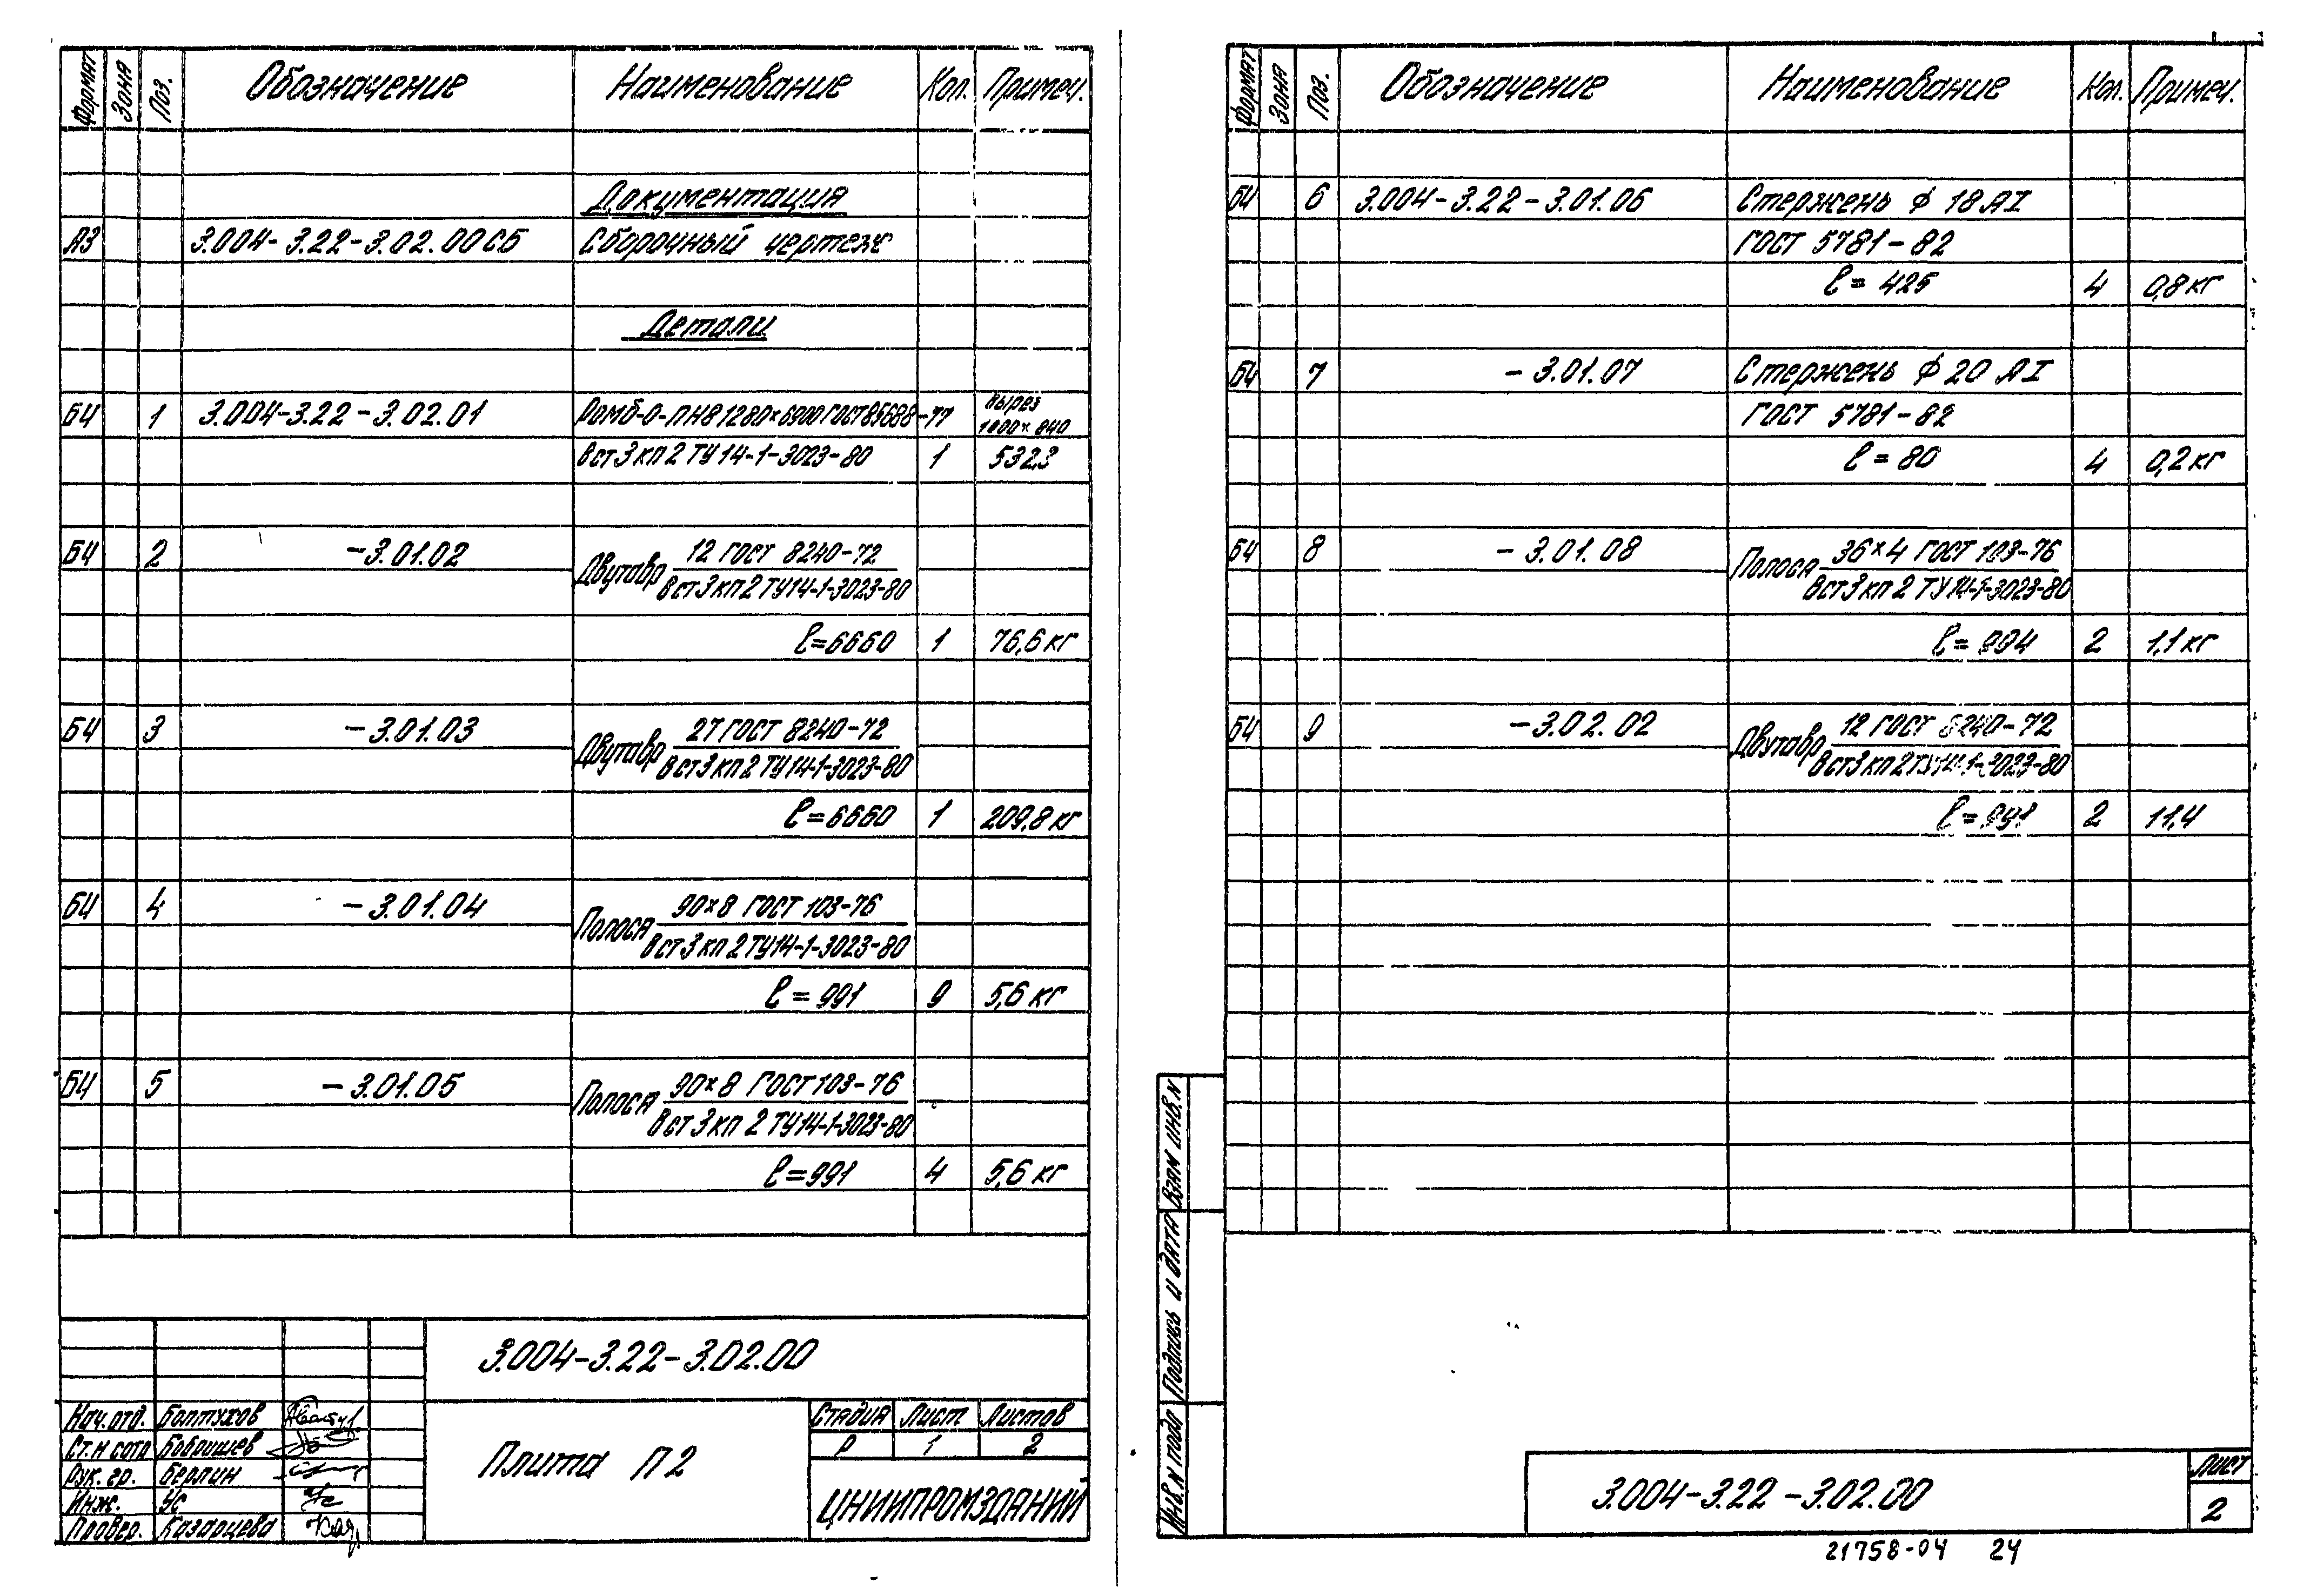 Формат Зона Поз. Обозначение Наименование Кол. Примеч.
Документация
А3 3.004-3.22-3.02.00СБ Сборочный чертеж
Детали
БЧ 1 3.004-3.22-3.02.01 Ромб-О-ПН8 1280×6900 ГОСТ 85688-77 вырез
1800×840
Вст3кп2 ТУ14-1-3023-80 1 532,3
БЧ 2 -3.01.02 Двутавр 12 ГОСТ 8240-72
Вст3кп2 ТУ14-1-3023-80
ℓ=6660 1 76,6 кг
БЧ 3 -3.01.03 Двутавр 27 ГОСТ 8240-72
Вст3кп2 ТУ14-1-3023-80
ℓ=6660 1 209,8 кг
БЧ 4 -3.01.04 Полоса 90×8 ГОСТ 103-76
Вст3кп2 ТУ14-1-3023-80
ℓ=991 9 5,6 кг
БЧ 5 -3.01.05 Полоса 90×8 ГОСТ 103-76
Вст3кп2 ТУ14-1-3023-80
ℓ=991 4 5,6 кг
3.004-3.22-3.02.00
Нач.отд. Болтухов
Ст.н сотр Бобришев
Рук.гр. Берлин
Инж. Ус
Провер. Казарцева
Плита П2
Стадия Лист Листов
Р 1 2
ЦНИИПРОМЗДАНИЙ
Формат Зона Поз. Обозначение Наименование Кол. Примеч.
БЧ 6 3.004-3.22-3.01.06 Стержень ϕ 18 АI
ГОСТ 5781-82
ℓ=425 4 0,8 кг
БЧ 7 -3.01.07 Стержень ϕ 20 АI
ГОСТ 5781-82
ℓ=80 4 0,2 кг
БЧ 8 -3.01.08 Полоса 36×4 ГОСТ 103-76
Вст3кп2 ТУ14-1-3023-80
ℓ=994 2 1,1 кг
БЧ 9 -3.02.02 Двутавр 12 ГОСТ 8240-72
Вст3кп2 ТУ14-1-3023-80
ℓ=991 2 11,4
Взам инв.N
Подпись и дата
Инв.N подл
3.004-3.22-3.02.00
Лист
2
21758-04 24